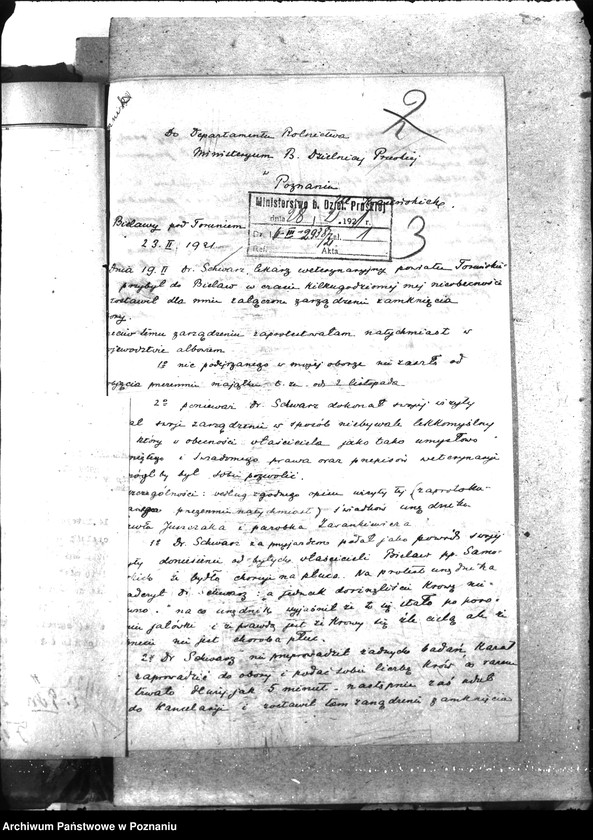 2
Do Departamentu Rolnictwa
Ministeryum B. Dzielnicy Pruskiej
w
Poznaniu
Ministerstwo b. Dziel. Pruskiej
dnia 28 / 2 1921 r.
zał. 1
Ref. Akta
3
Bielawy pod Toruniem
23. II. 1921
Dnia 19. II Dr. Schwarz, lekarz weterynaryjny powiatu
przybył do Bielaw w czasie kilkugodzinnej mej nieobecności
zostawił dla mnie załączone zarządzenie zamknięcia
ory.
eciw temu zarządzeniu zaprotestowałam natychmiast w
ojewództwie albowiem
1º nic podejrzanego w mojej oborze nie zaszło od
ęcia przezemnie majątku t. zn. od 2 listopada
2º ponieważ Dr. Schwarz dokonał swojej wizyty
swoje zarządzenie w sposób niebywale lekkomyślny
który w obecności właściciela jako tako umysłowo
i świadomego prawa oraz przepisów weterynaryi
mógłby był sobie pozwolić.
zczególności: według zgodnego opisu wizyty tej (zaprotoko-
przezemnie natychmiast) świadków urzędnika
Juszczaka i parobka Zasankiewicza
1º Dr. Schwarz za przyjazdem podał jako powód swojej
yty doniesienie od byłych właścicieli Bielaw pp. Samo-
że bydło choruje na płuca. Na protest urzędnika
Dr. Schwarz: "a jednak dorżnęliście krowę nie-
wno." na co urzędnik wyjaśnił że to się stało po poro-
jałówki i że prawdą jest że krowy się źle cielą ale że
nie jest choroba płuc.
2º Dr Schwarz nie przeprowadził żadnych badań kazał
zaprowadzić do obory i podać sobie liczbę krów co razem
trwało dłużej jak 5 minut - następnie zaś udał
do kancelaryi i zostawił tam zarządzenie zamknięcia
Archiwum Państwowe w Poznaniu